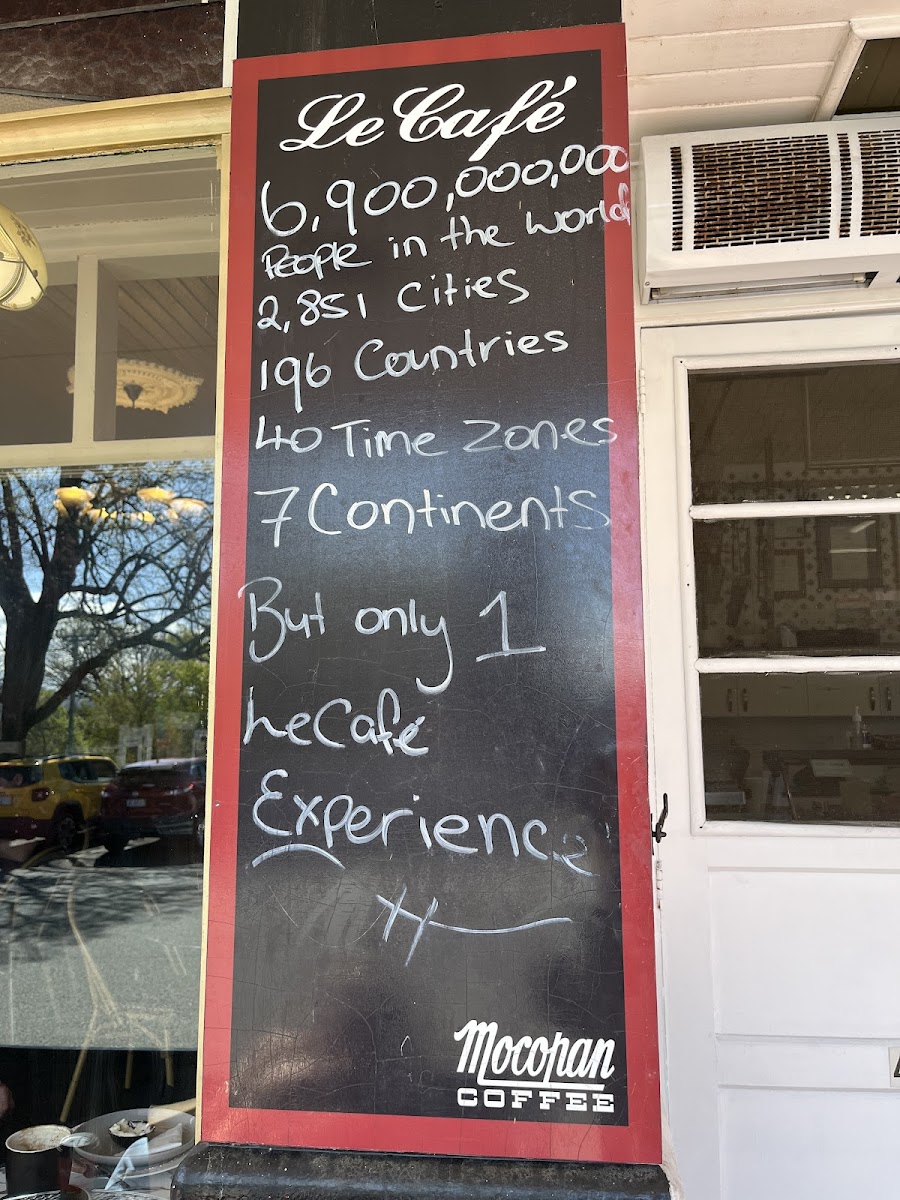 Le Café
6,900,000,000
People in the World
2,851 Cities
196 Countries
40 Time Zones
7 Continents
But only 1
LeCafé
Experience
Mocopan
COFFEE